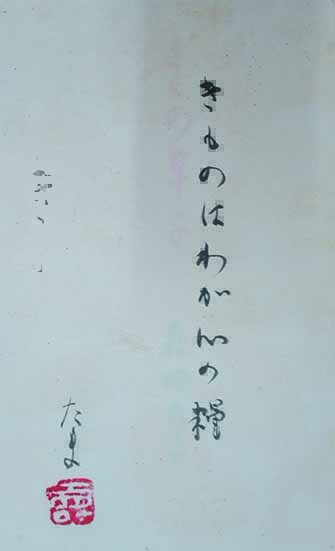 きものはわが心の糧
たま